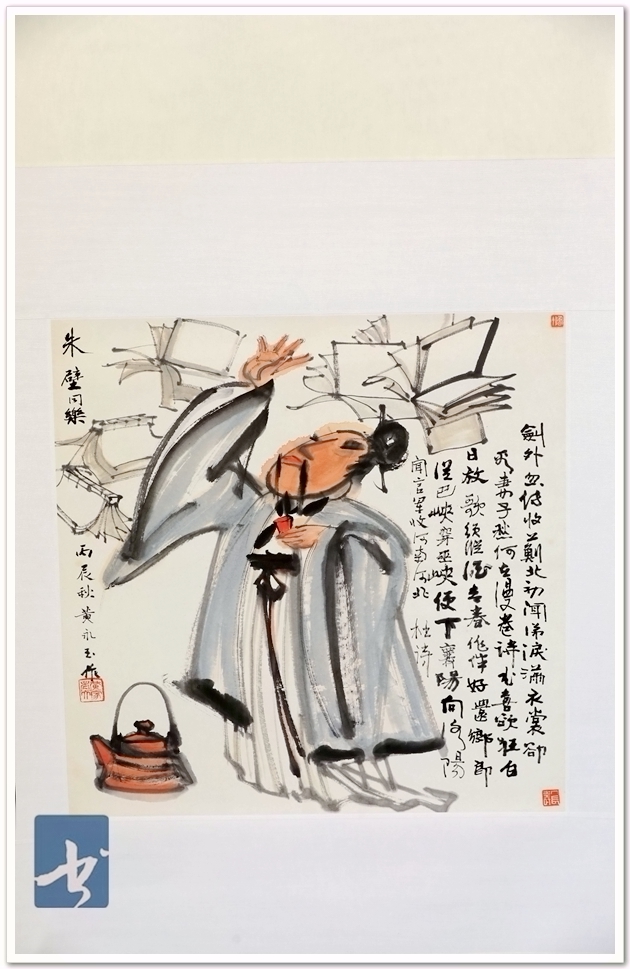 劍外忽传收薊北初聞涕淚滿衣裳卻
看妻子愁何在漫卷詩书喜欲狂白
日放歌須縱酒青春作伴好還鄉即
從巴峽穿巫峽便下襄陽向洛陽
聞官軍收河南河北 杜詩
朱璧同樂
丙辰秋黄永玉作